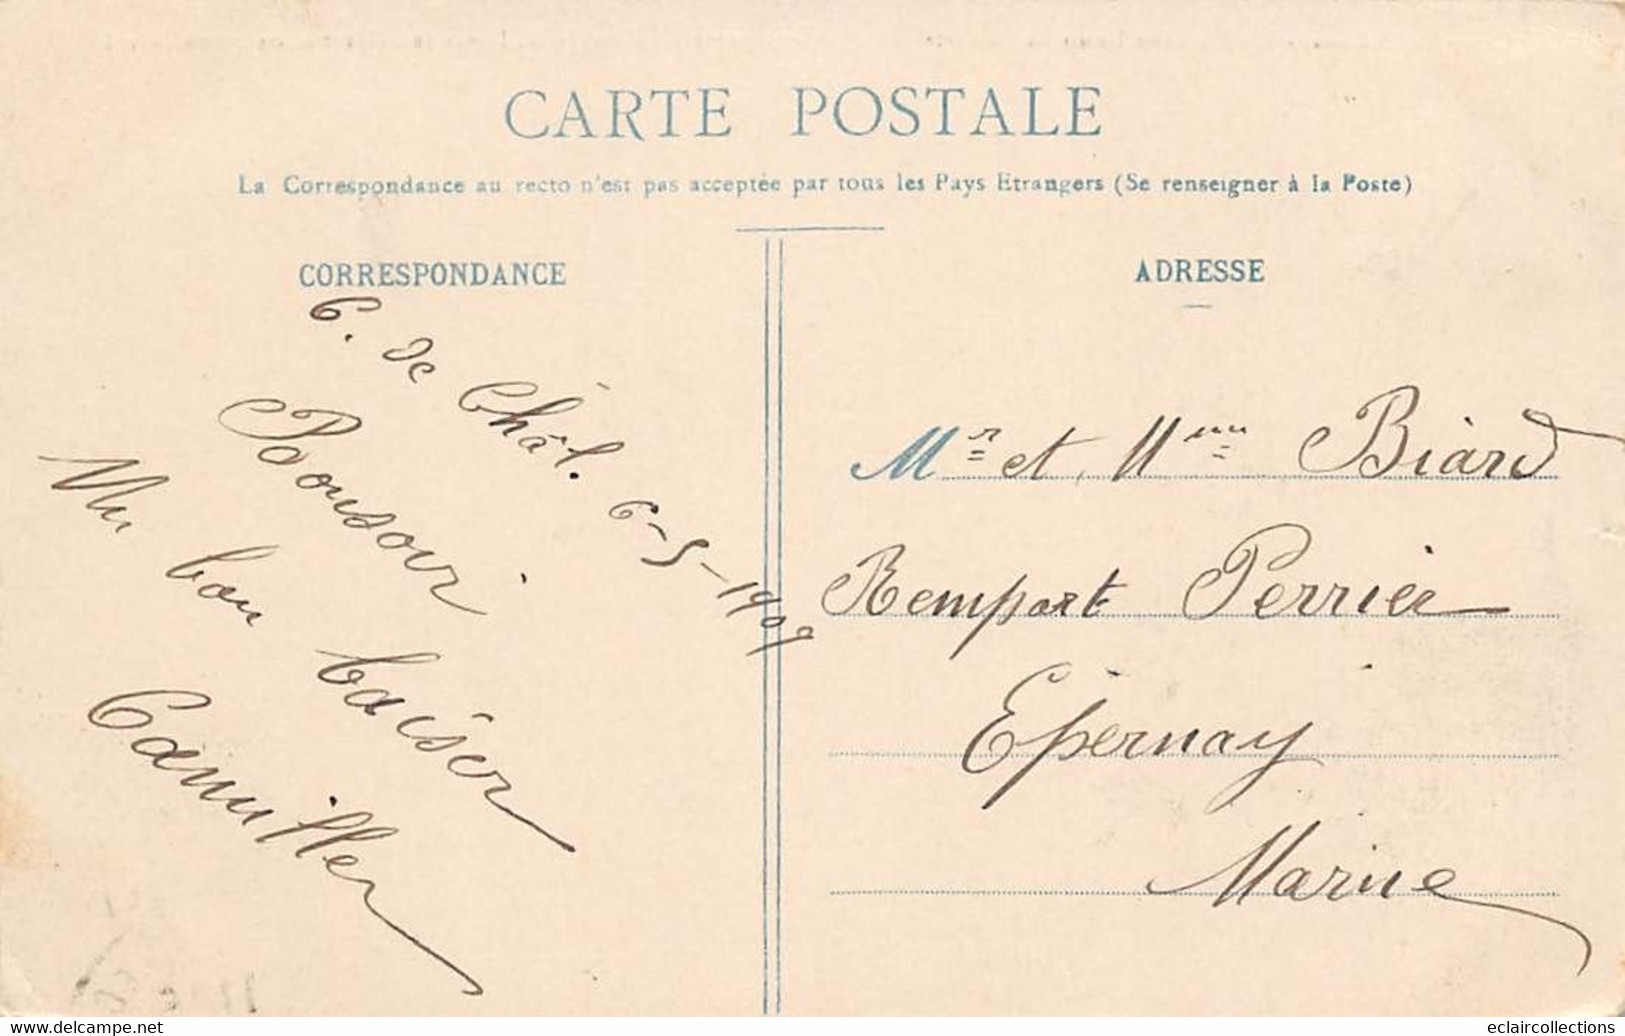 CARTE POSTALE
La Correspondance au recto n'est pas acceptée par tous les Pays Etrangers (Se renseigner à la Poste)
CORRESPONDANCE
C. de Châl. 6-5-1909
Bonsoir
Un bon baiser
Camille
ADRESSE
Mr et Mme Biard
Rempart Perrier
Épernay
Marne
www.delcampe.net
eclaircollections